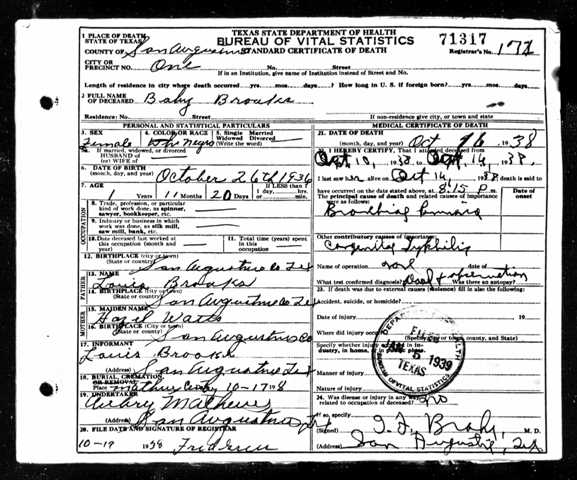 TEXAS STATE DEPARTMENT OF HEALTH
BUREAU OF VITAL STATISTICS
STANDARD CERTIFICATE OF DEATH
71317
Registrar's No. 171
1 PLACE OF DEATH
STATE OF TEXAS
COUNTY OF San Augustine
CITY OR
PRECINCT NO. One No. Street
If in an Institution, give name of Institution instead of Street and No.
Length of residence in city where death occurred yrs. mos. days. How long in U. S. if foreign born? yrs. mos. days
2 FULL NAME
OF DECEASED Baby Brooks
Residence: No. Street
If non-residence give city, or town and state
PERSONAL AND STATISTICAL PARTICULARS
3. SEX
Female
4. COLOR OR RACE
Negro
5. Single Married
Widowed Divorced
(Write the word)
5a. If married, widowed, or divorced
HUSBAND of
(or) WIFE of
6. DATE OF BIRTH
(month, day, year) October 26th 1936
7. AGE
1 Years 11 Months 20 Days
If LESS than 1
day, hrs.
or min.
OCCUPATION
8. Trade, profession, or particular
kind of work done, as spinner,
sawyer, bookkeeper, etc.
9. Industry or business in which
work was done, as silk mill,
saw mill, bank, etc.
10. Date deceased last worked at
this occupation (month and
year)
11. Total time (years)
spent in this
occupation
12. BIRTHPLACE (city or town)
(State or country) San Augustine Co Tex
FATHER
13. NAME
Louis Brooks
14. BIRTHPLACE (City or town)
(State or country) San Augustine Co Tex
MOTHER
15. MAIDEN NAME
Hazel Watts
16. BIRTHPLACE (City or town)
(State or country) San Augustine Co
17. INFORMANT
Louis Brooks
(Address) San Augustine Tex
18. BURIAL, CREMATION,
OR REMOVAL
Place 10-17
19. UNDERTAKER
Aubry Mathews
(Address) San Augustine Tex
20. FILE DATE AND SIGNATURE OF REGISTRAR
10-19 1938
MEDICAL CERTIFICATE OF DEATH
21. DATE OF DEATH
(month, day, year) Oct 16 1938
22. I HEREBY CERTIFY, That I attended deceased from
Oct 10, 1938, 14, 1938,
I last saw alive on Oct 14, 1938 death is said to
have occurred on the date stated above, at 8:15 P.m.
The principal cause of death and related causes of importance
were as follows:
Date of
onset
Bronchial
Other contributory causes of importance:
Congenital Syphilis
Name of operation date of
What test confirmed diagnosis? observation Was there an autopsy?
23. If death was due to external causes (violence) fill in also the following:
Accident, suicide, or homicide?
Date of injury 19
Where did injury occur
(Specify city or town, county, and state)
Specify whether injury occurred in industry, in home,
Manner of injury
Nature of injury
24. Was disease or injury in any way
related to occupation of deceased? no
If so, specify
(Signed) M. D.
(Address) San Augustine, Tex
FILED
1939
BUREAU OF VITAL STATISTICS